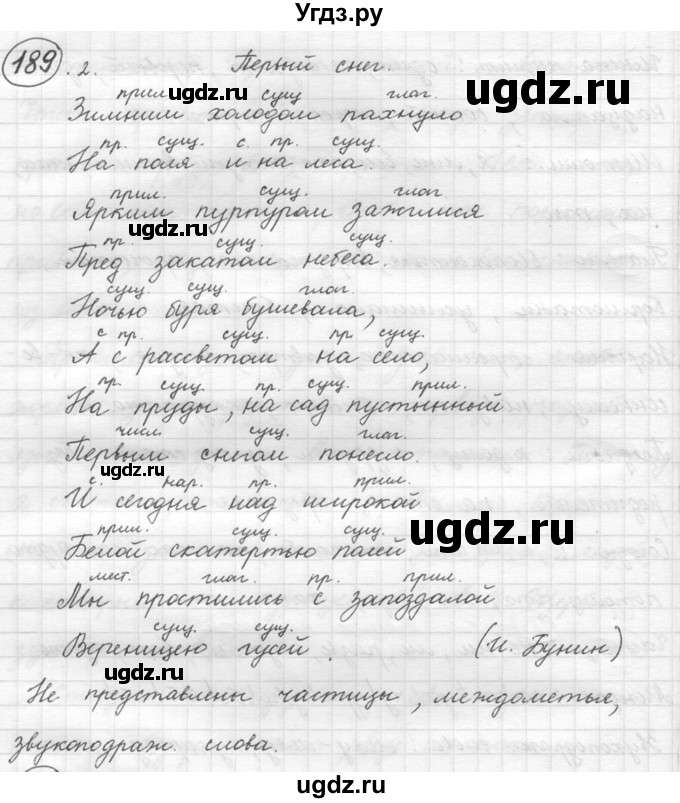 Угдз.ру
189.2. Перый снег.
прил. сущ глаг.
Зимним холодом пахнуло
пр. сущ. с. пр. сущ.
На поля и на леса.
прил. сущ. глаг
Ярким пурпуром зажглися
пр. сущ. сущ.
Пред закатом небеса.
сущ. сущ. глаг.
Ночью буря бушевала,
с пр. сущ. пр сущ.
А с рассветом на село,
пр. сущ. пр. сущ. прил.
На пруды, на сад пустынный
числ. сущ. глаг.
Первым снегом понесло.
с. нар. пр. прил.
И сегодня над широкой
прил. сущ. сущ.
Белой скатертью полей
мест. глаг. пр. прил.
Мы простились с запоздалой
сущ. сущ.
Вереницею гусей. (И. Бунин)
Не представлены частицы, междометья,
звукоподраж. слова.
ugdz.ru
ugdz.ru
ugdz.ru
ugdz.ru
ugdz.ru
ugdz.ru
ugdz.ru
ugdz.ru
ugdz.ru